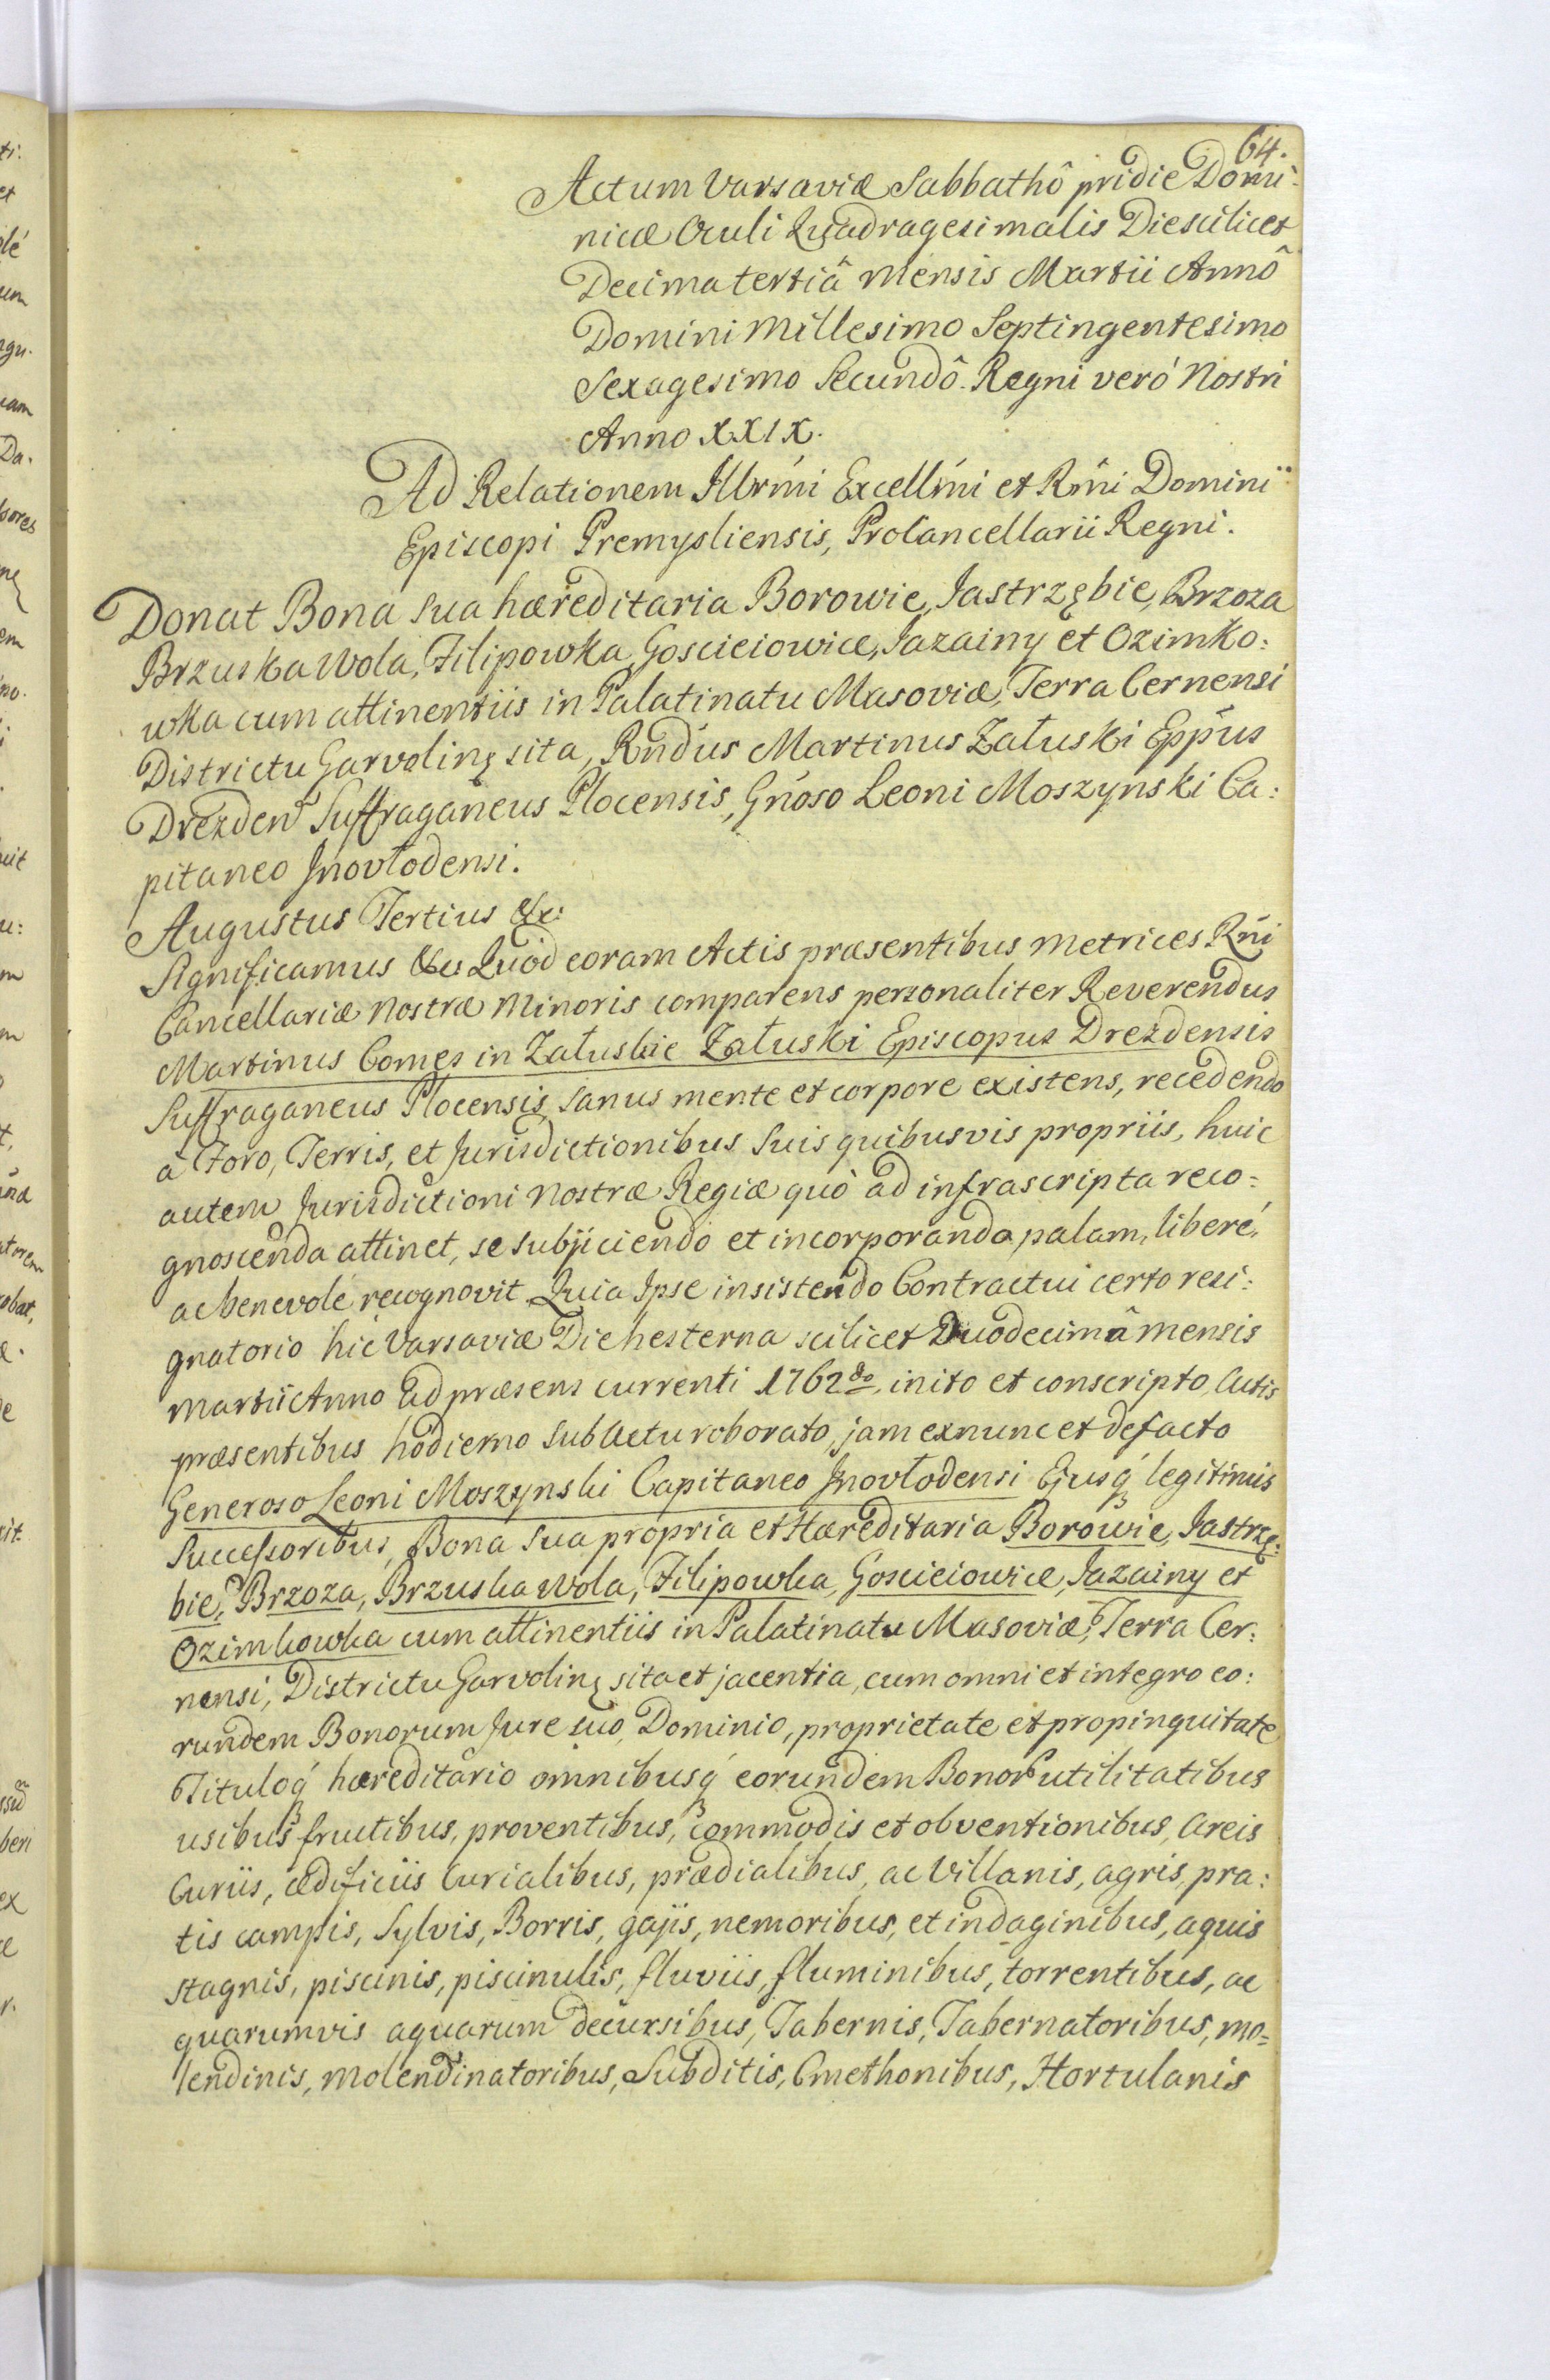 64.
Actum Varsaviæ Sabbathô pridie Domi-
nicæ Oculi Quadragesimalis Die scilicet
Decima tertiâ mensis Martii Annô
Domini Millesimo Septingentesimo
Sexagesimo Secundô. Regni veró Nostri
Anno XXIX.
Ad Relationem Illrmi Excellmi et Rmi Domini
Episcopi Premysliensis, ProCancellarii Regni.
Donat Bona sua hæreditaria Borowie, Jastrzębie, Brzoza
Brzuska Wola, Filipowka, Goscieiowice, Jazainy et Ozimko:
wka cum attinentiis in Palatinatu Masoviæ, Terra Cernensi
Districtu Garvolinę sita, Rndus Martinus Załuski Eppus
Drezden Suffraganeus Plocensis, Gnoso Leoni Moszynski Ca:
pitaneo Jnovłodensi.
Augustus Tertius &c:
Significamus &c: Quod coram Actis præsentibus Metrices Rni
Cancellariæ Nostræ Minoris comparens personaliter Reverendus
Martinus Comes in Załuskie Załuski Episcopus Drezdensis
Suffraganeus Plocensis, sanus mente et corpore existens, recedendo
à Foro, Terris, et Jurisdictionibus Suis quibusvis propriis, huic
autem Jurisdictioni Nostræ Regiæ quò ad infrascripta reco=
gnoscenda attinet, se subjiciendo et incorporando, palam, liberé,
ac benevolé recognovit. Quia Ipse insistendo Contractui certo resi:
gnatorio hic Varsaviæ Die hesterna scilicet Duodecimâ mensis
Martii Anno ad præsens currenti 1762do. inito et conscripto, Actis
præsentibus hodierno sub Actu roborato, jam exnunc et defacto
Generoso Leoni Moszynski Capitaneo Jnovłodensi Ejusq́ legitimis
Successoribus, Bona sua propria et Hæreditaria Borowie, Jastrzę:
bie, Brzoza, Brzuska Wola, Filipowka, Goscieiowice, Jazainy et
Ozimkowka cum attinentiis in Palatinatu Masoviæ, Terra Cer:
nensi, Districtu Garvolinę sita et jacentia, cum omni et integro eo:
rundem Bonorum Jure suo, Dominio, proprietate et propinquitate
Tituloq́ hæreditario omnibusq́ eorundem Bonor utilitatibus
usibus fructibus, proventibus, commodis et obventionibus, Areis
Curiis, ædificiis Curialibus, prædialibus, ac Villanis, agris, pra:
tis campis, Sylvis, Borris, gajis, nemoribus, et indaginibus, aquis
stagnis, piscinis, piscinulis, fluviis, fluminibus, torrentibus, ac
quarumvis aquarum decursibus, Tabernis, Tabernatoribus, mo=
lendinis, Molendinatoribus, Subditis, Cmethonibus, Hortulanis